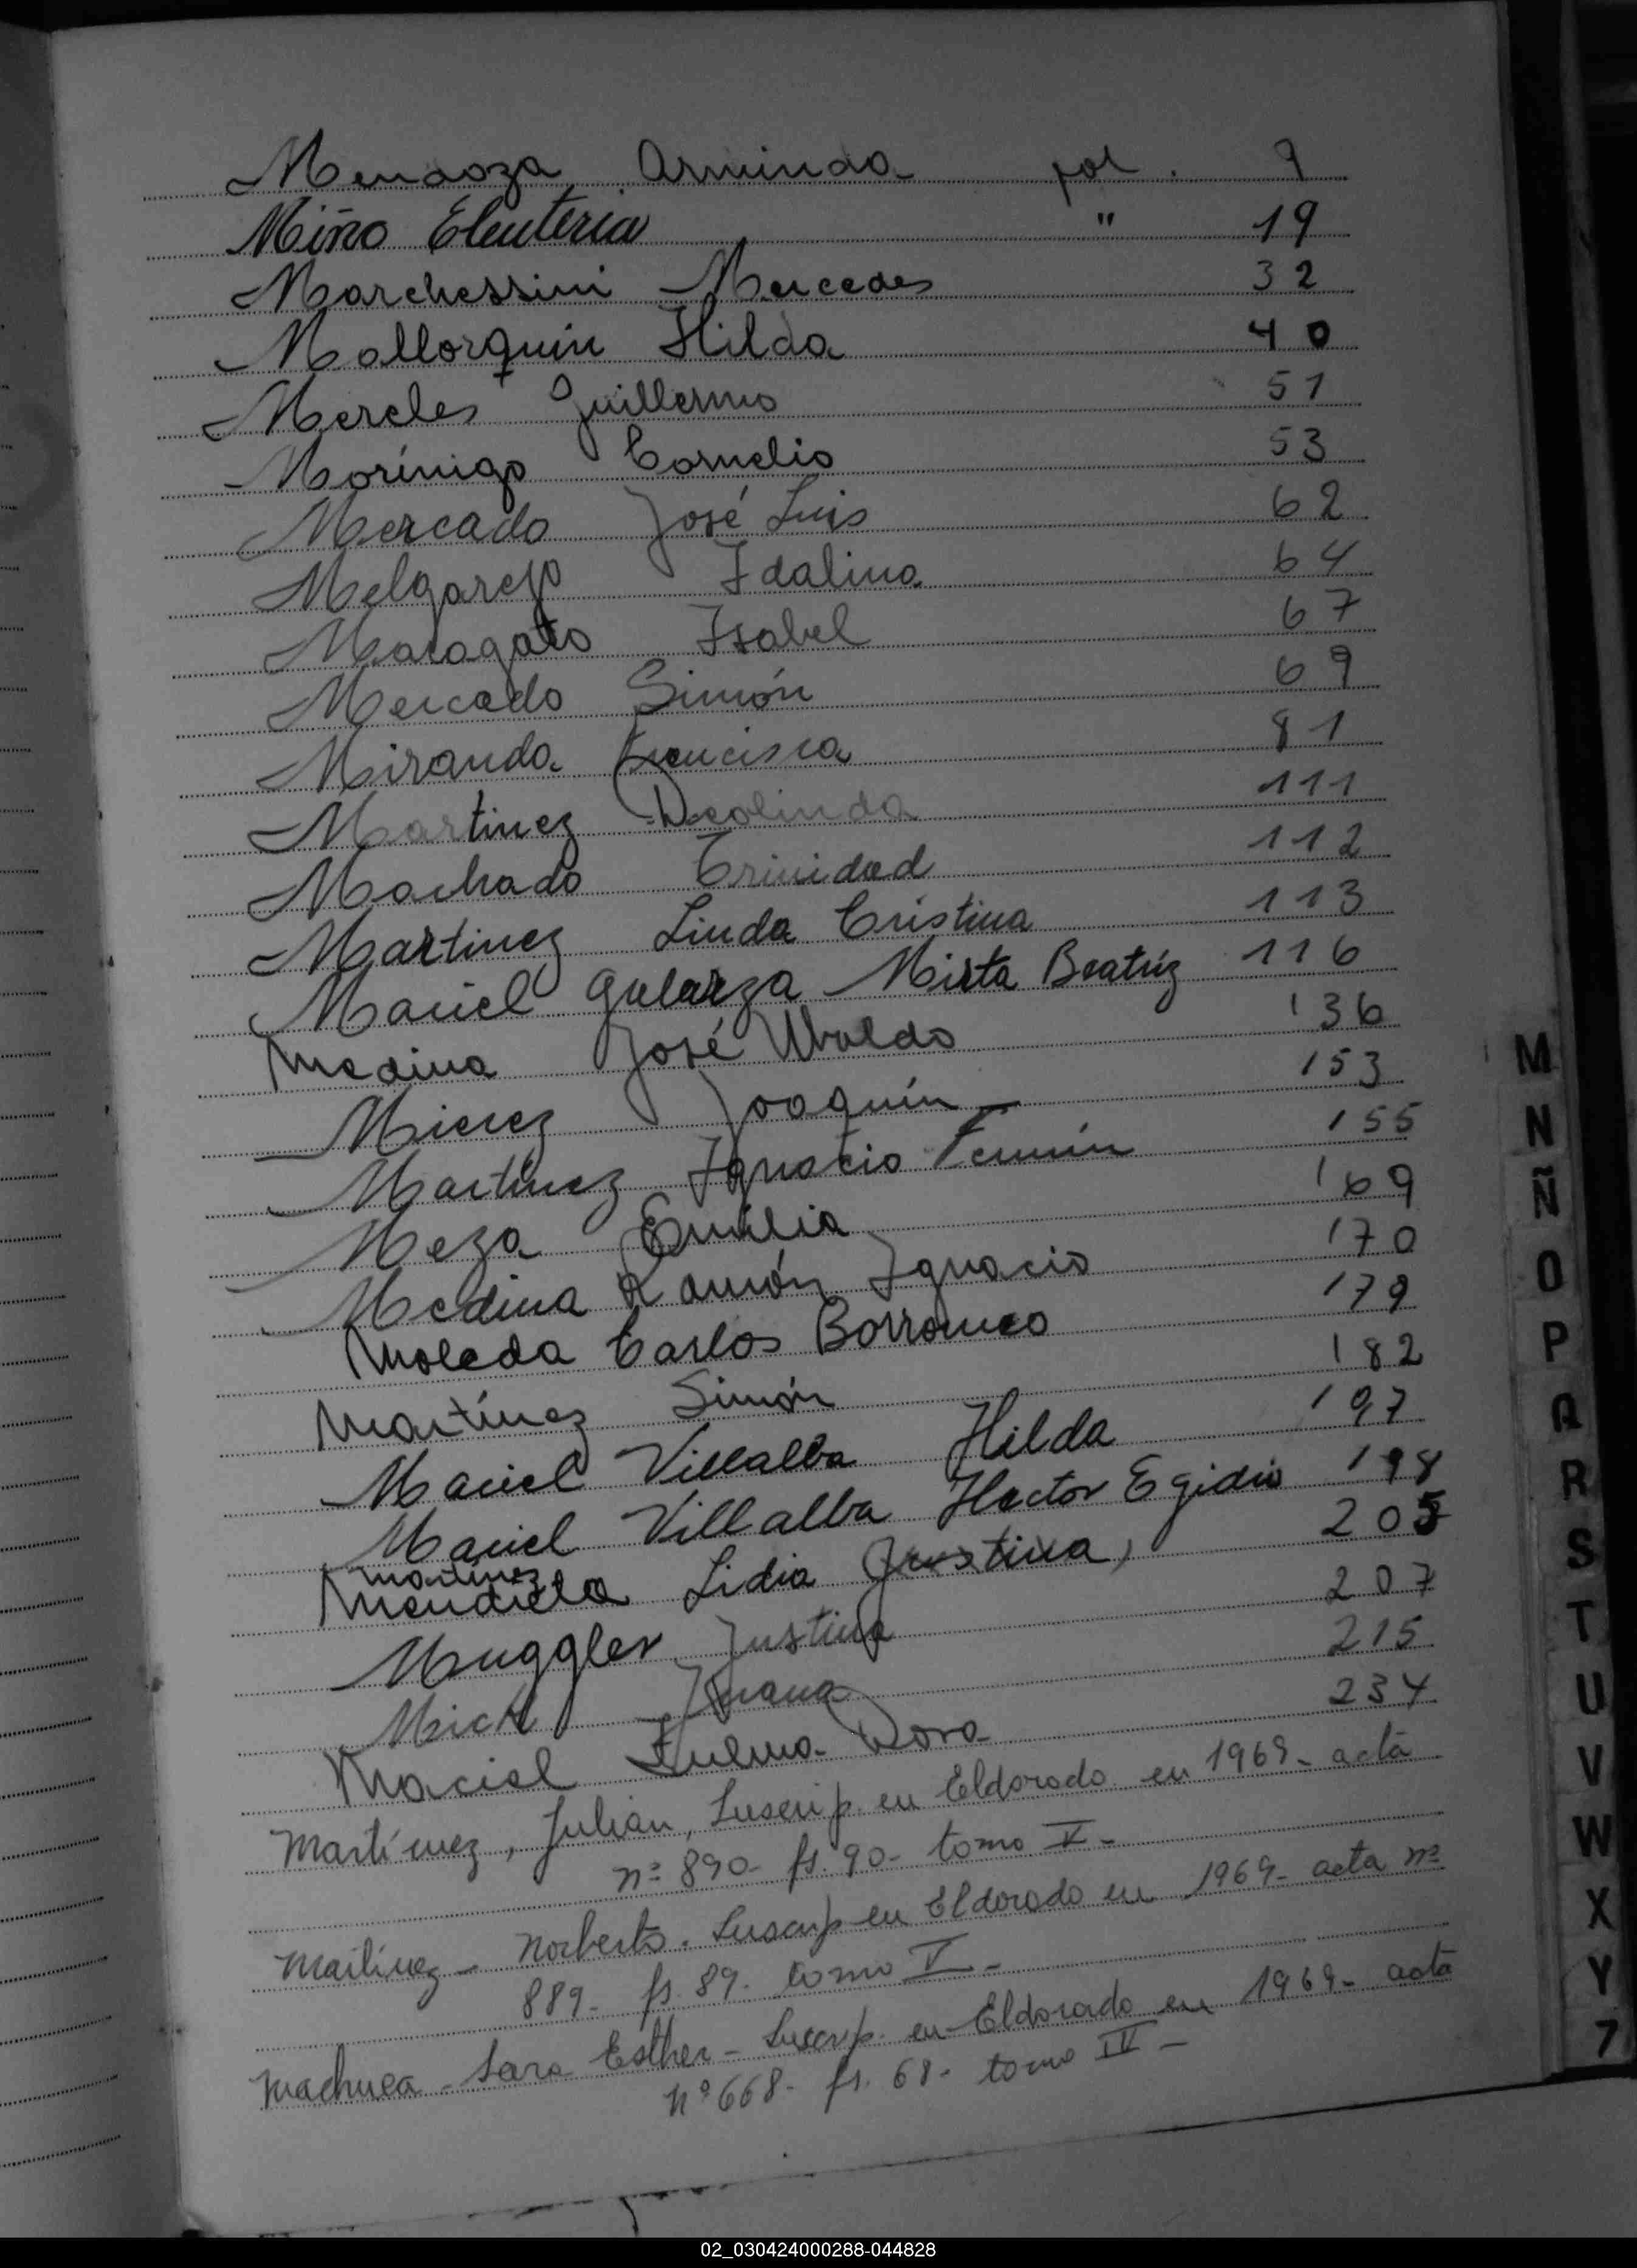 Mendoza Arminda fol. 9
Miño Eleuteria " 19
Marchessini Mercedes 32
Mallorquin Hilda 40
Mereles Guillermo 51
Morínigo Cornelio 53
Mercado José Luis 62
Melgarejo Idalina 64
Maragato Isabel 67
Mercado Simón 69
Miranda Francisca 81
Martinez Deolinda 111
Machado Trinidad 112
Martinez Linda Cristina 113
Maciel Galarza Mirta Beatriz 116
Medina José Ubaldo 136
Mierez Joaquín 153
Martínez Ignacio Fermín 155
Meza Emilia 169
Medina Ramón Ignacio 170
Moleda Carlos Borromeo 179
Martínez Simón 182
Maciel Villalba Hilda 197
Maciel Villalba Hector Egidio 198
martinez
Mendieta Lidia Justina, 205
Muggler Justina 207
Mick Juana 215
Macial Zulma Dora 234
Martínez, Julián, Inscrip. en Eldorado en 1969- acta
nº 890- fs. 90- tomo V-
Martínez- Norberto. Inscrip en Eldorado en 1969- acta nº
889- fs. 89- tomo V-
Machuca- Sara Esther- Inscrip. en Eldorado en 1969- acta
nº 668- fs. 68- tomo IV-
M
N
Ñ
O
P
Q
R
S
T
U
V
W
X
Y
Z
02_030424000288-044828